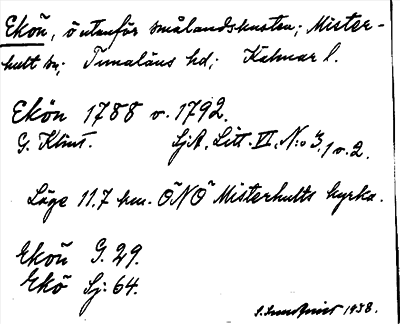 Ekön, ö utanför smålandskusten; Mister-
hult sn; Tunaläns hd; Kalmar l.
Ekön 1788 o. 1792.
G. Klint. SjA, Litt. VI, N:o 3, 1 o. 2.
Läge 11.7 km. ÖNÖ Misterhults kyrka.
Ekön G. 29.
Ekö Sj: 64.
S. Lundqvist 1938.